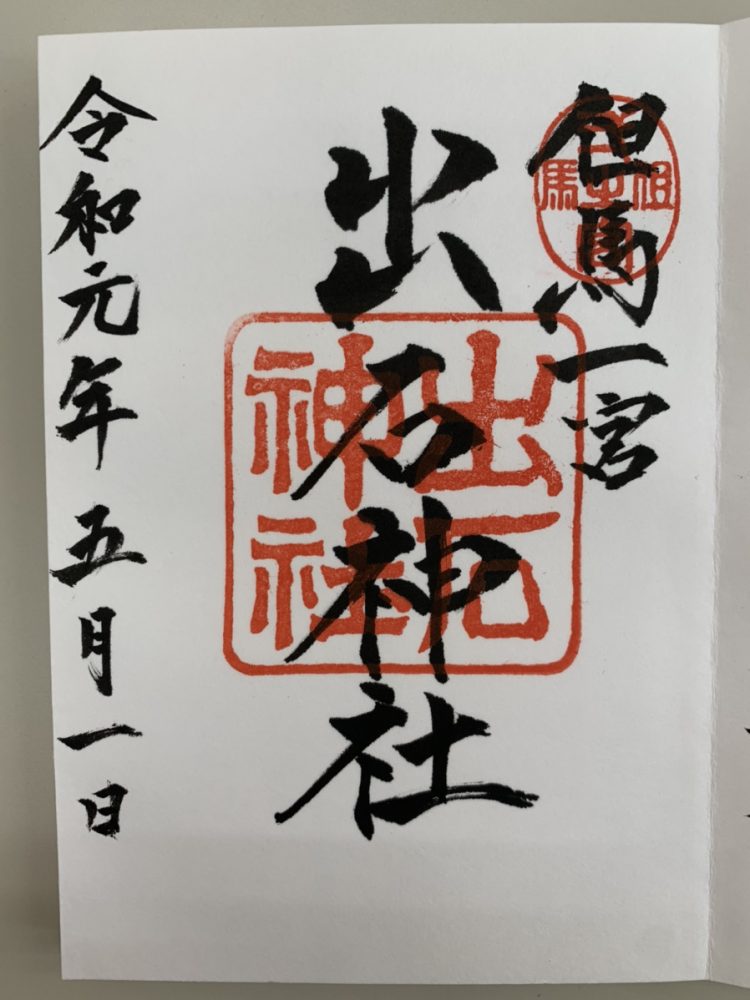 但馬一宮
但馬
出石神社
出石
神社
令和元年五月一日